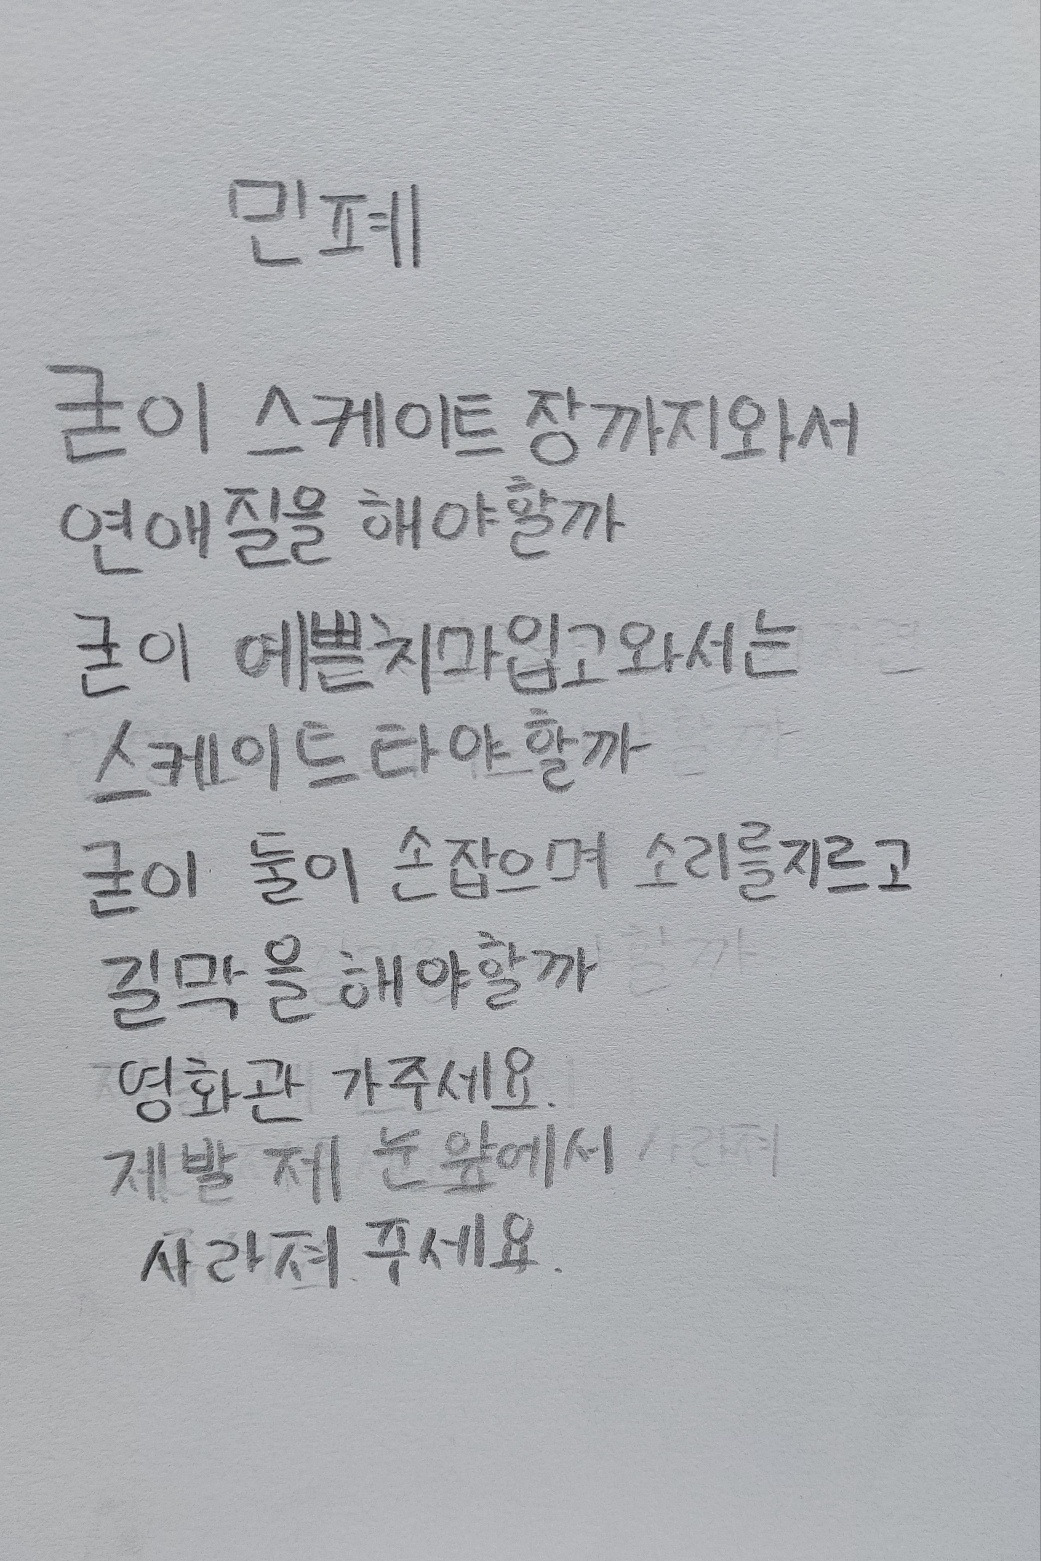 민폐
굳이 스케이트 장까지와서
연애질을 해야할까
굳이 예쁜치마입고와서는
스케이트타야할까
굳이 둘이 손잡으며 소리를지르고
길막을 해야할까
영화관 가주세요.
제발 제 눈앞에서
사라져 주세요.